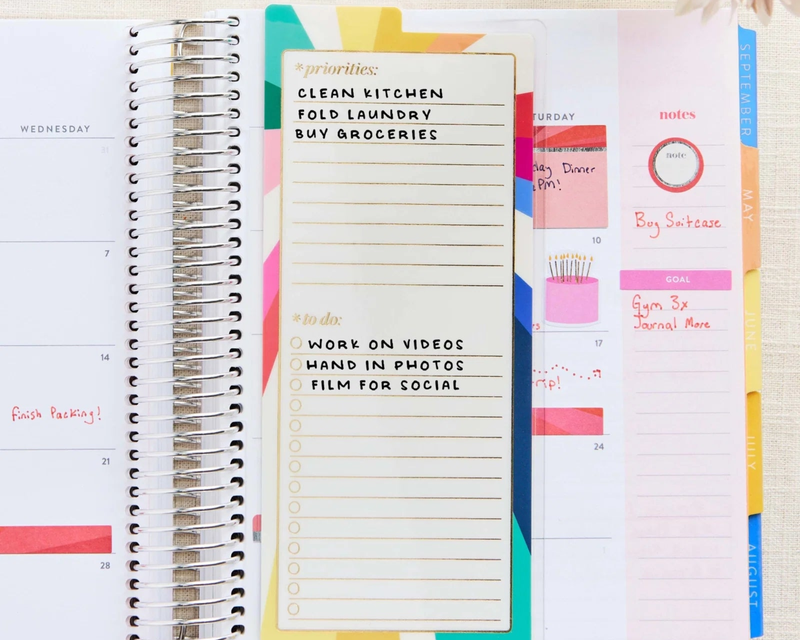 WEDNESDAY
31
7
14
finish Packing!
21
28
*priorities:
CLEAN KITCHEN
FOLD LAUNDRY
BUY GROCERIES
*to do:
WORK ON VIDEOS
HAND IN PHOTOS
FILM FOR SOCIAL
TURDAY
day Dinner
PM!
10
17
rip!
24
notes
note
Buy Suitcase
GOAL
Gym 3x
Journal More
SEPTEMBER
MAY
JUNE
JULY
AUGUST